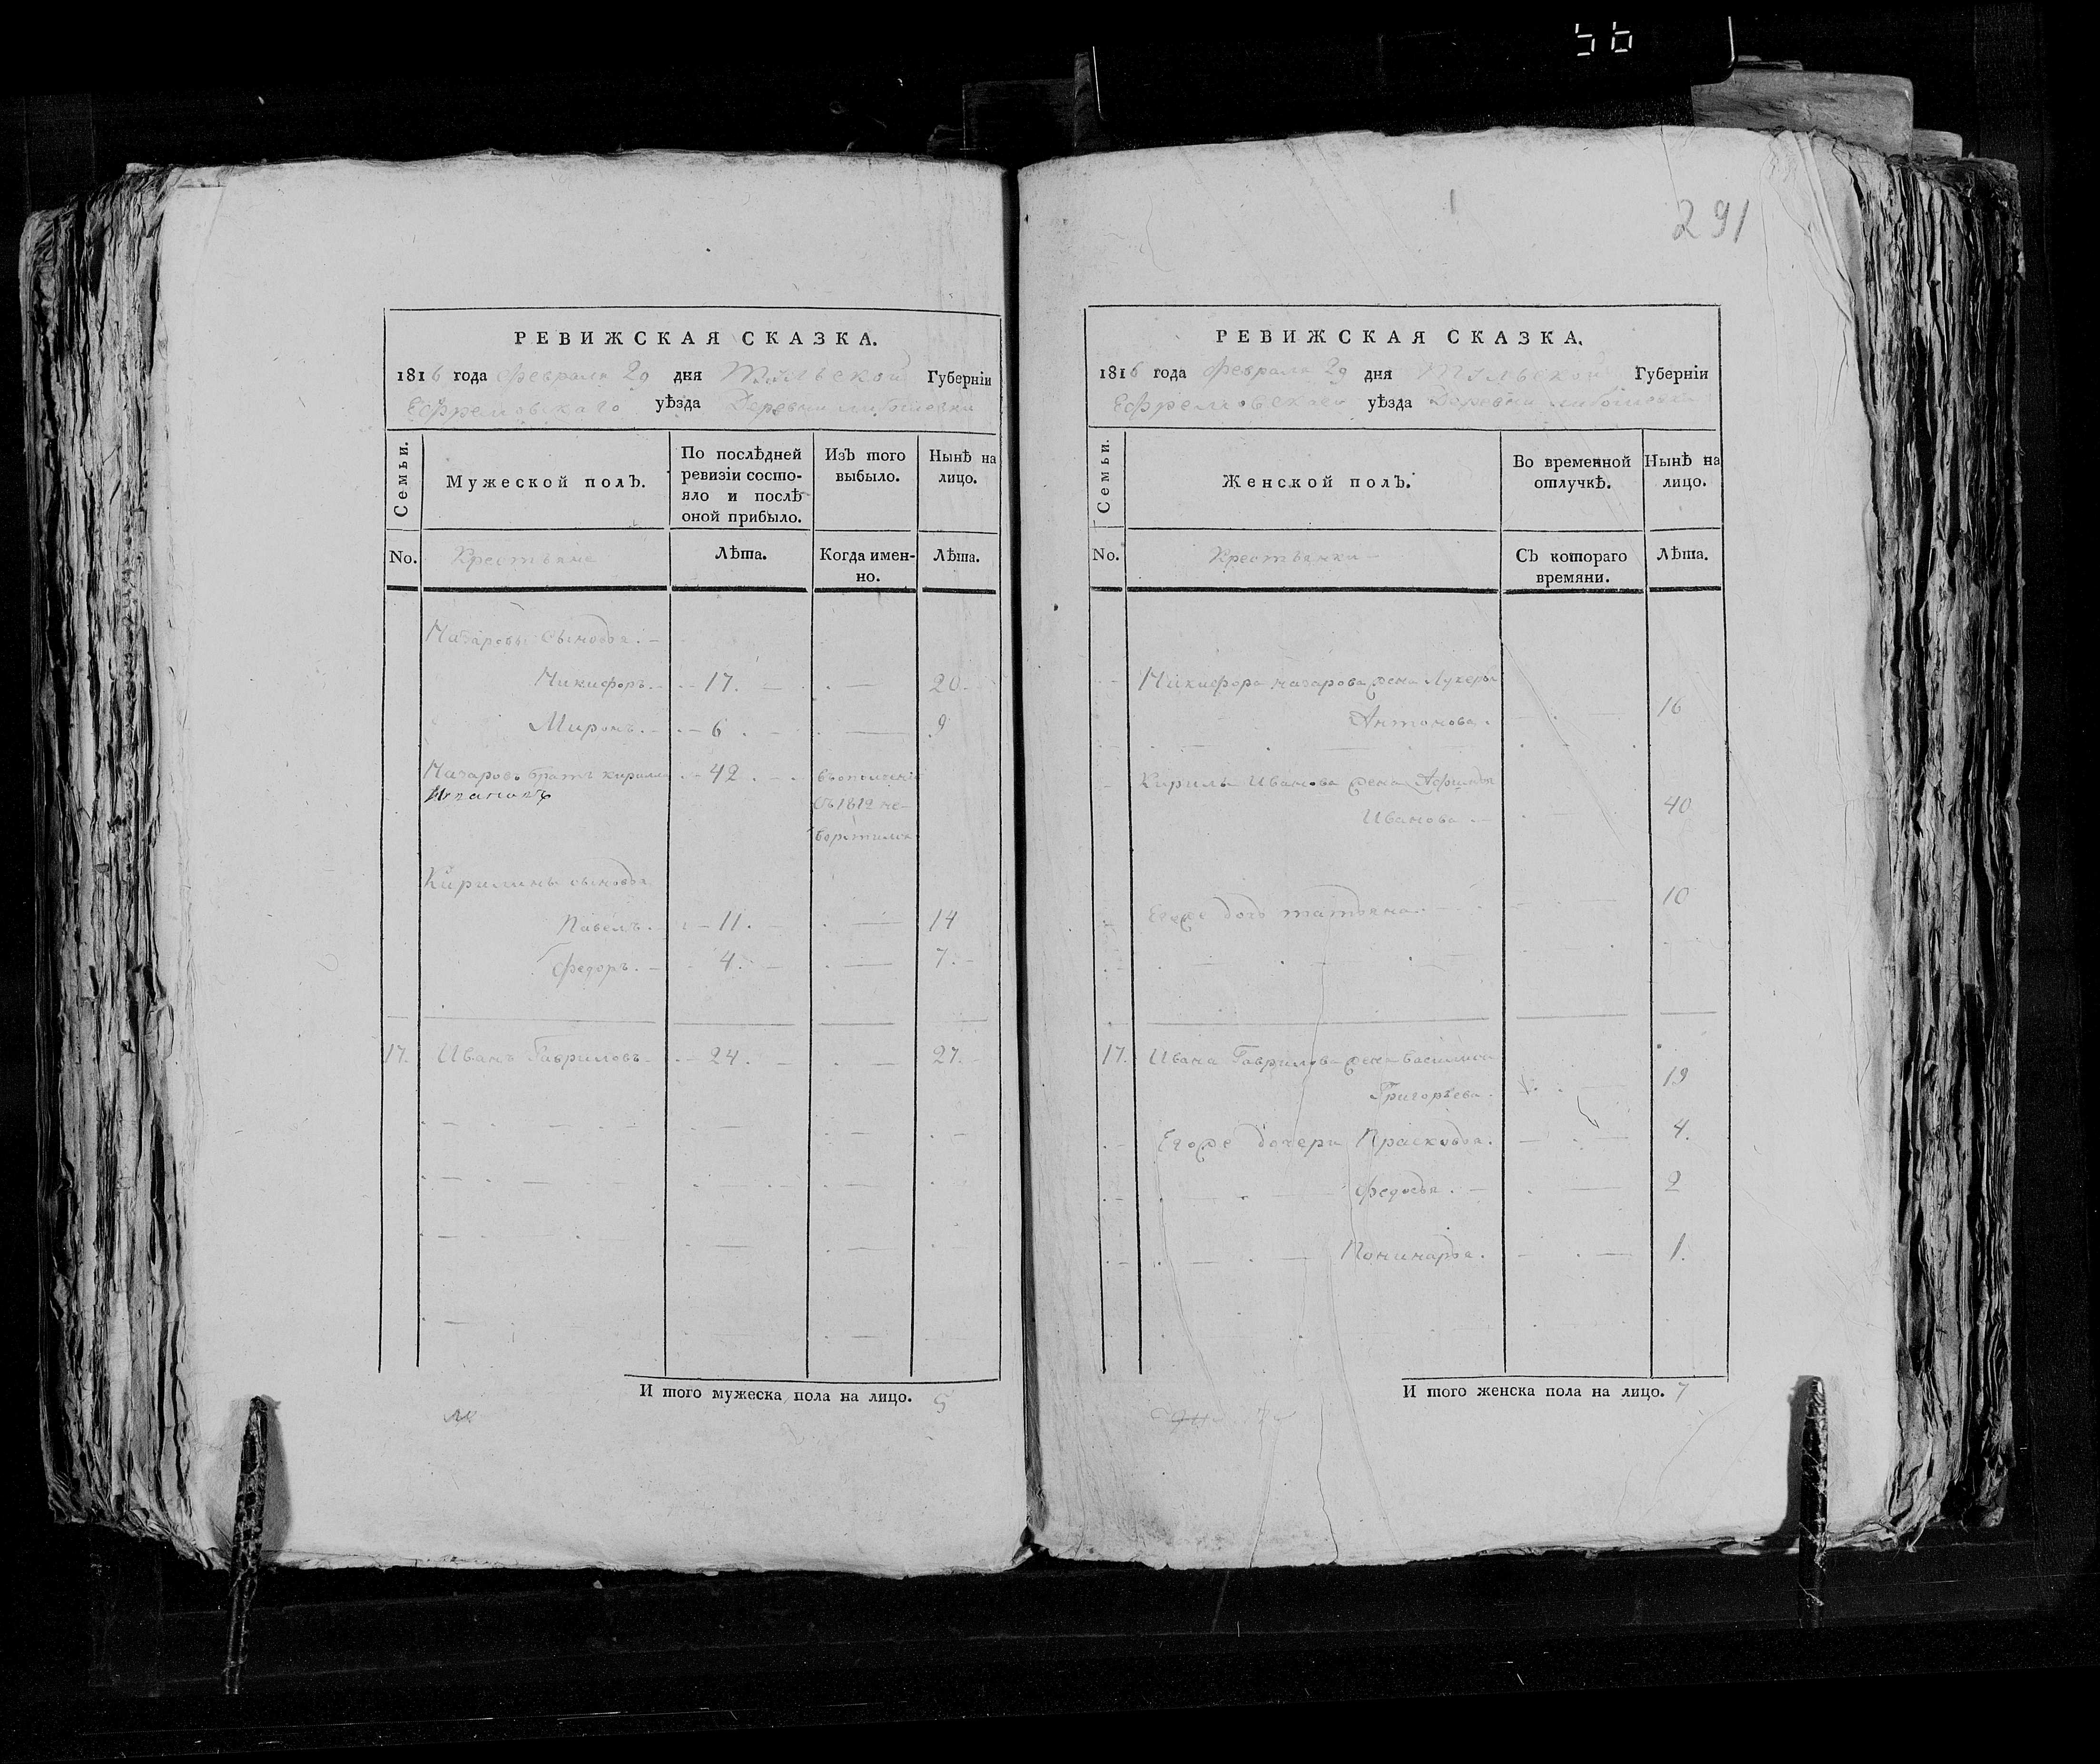 56
РЕВИЖСКАЯ СКАЗКА.
1816 года февраля 29 дня Тульской Губерніи
Ефремовскаго уѣзда Деревни
Семьи.
Мужеской полъ.
По послѣдней
ревизіи состо-
яло и послѣ
оной прибыло.
Изъ того
выбыло.
Нынѣ на
лицо.
No.
Крестьяне
Лѣта.
Когда имен-
но.
Лѣта.
Назаровы сыновья. —
Никифоръ. — 17. — 20.
Миронъ. — 6. — 9
Назаровъ братъ кирила — 42. — въополчені
въ 1812 не-
воротился
Кирилины сыновья
Павелъ. — 11. — 14
Федоръ. — 4. — 7.
17. Иванъ Гавриловъ — 24. — 27.
И того мужеска пола на лицо. 5
291
РЕВИЖСКАЯ СКАЗКА.
1816 года февраля 29 дня Тульской Губерніи
Ефремовскаго уѣзда Деревни
Семьи.
Женской полъ.
Во временной
отлучкѣ.
Нынѣ на
лицо.
No.
Крестьянки —
Съ котораго
времяни.
Лѣта.
Никифора назарова жена Лукерья
Антонова. — 16
Кирилы Иванова жена
Иванова — 40
Егоже дочь татьяна — 10
17. Ивана Гаврилова жена василиса
Григорьева. — 19
Егоже дочери Прасковья. — 4.
Федосья. — 2
— 1.
И того женска пола на лицо. 7